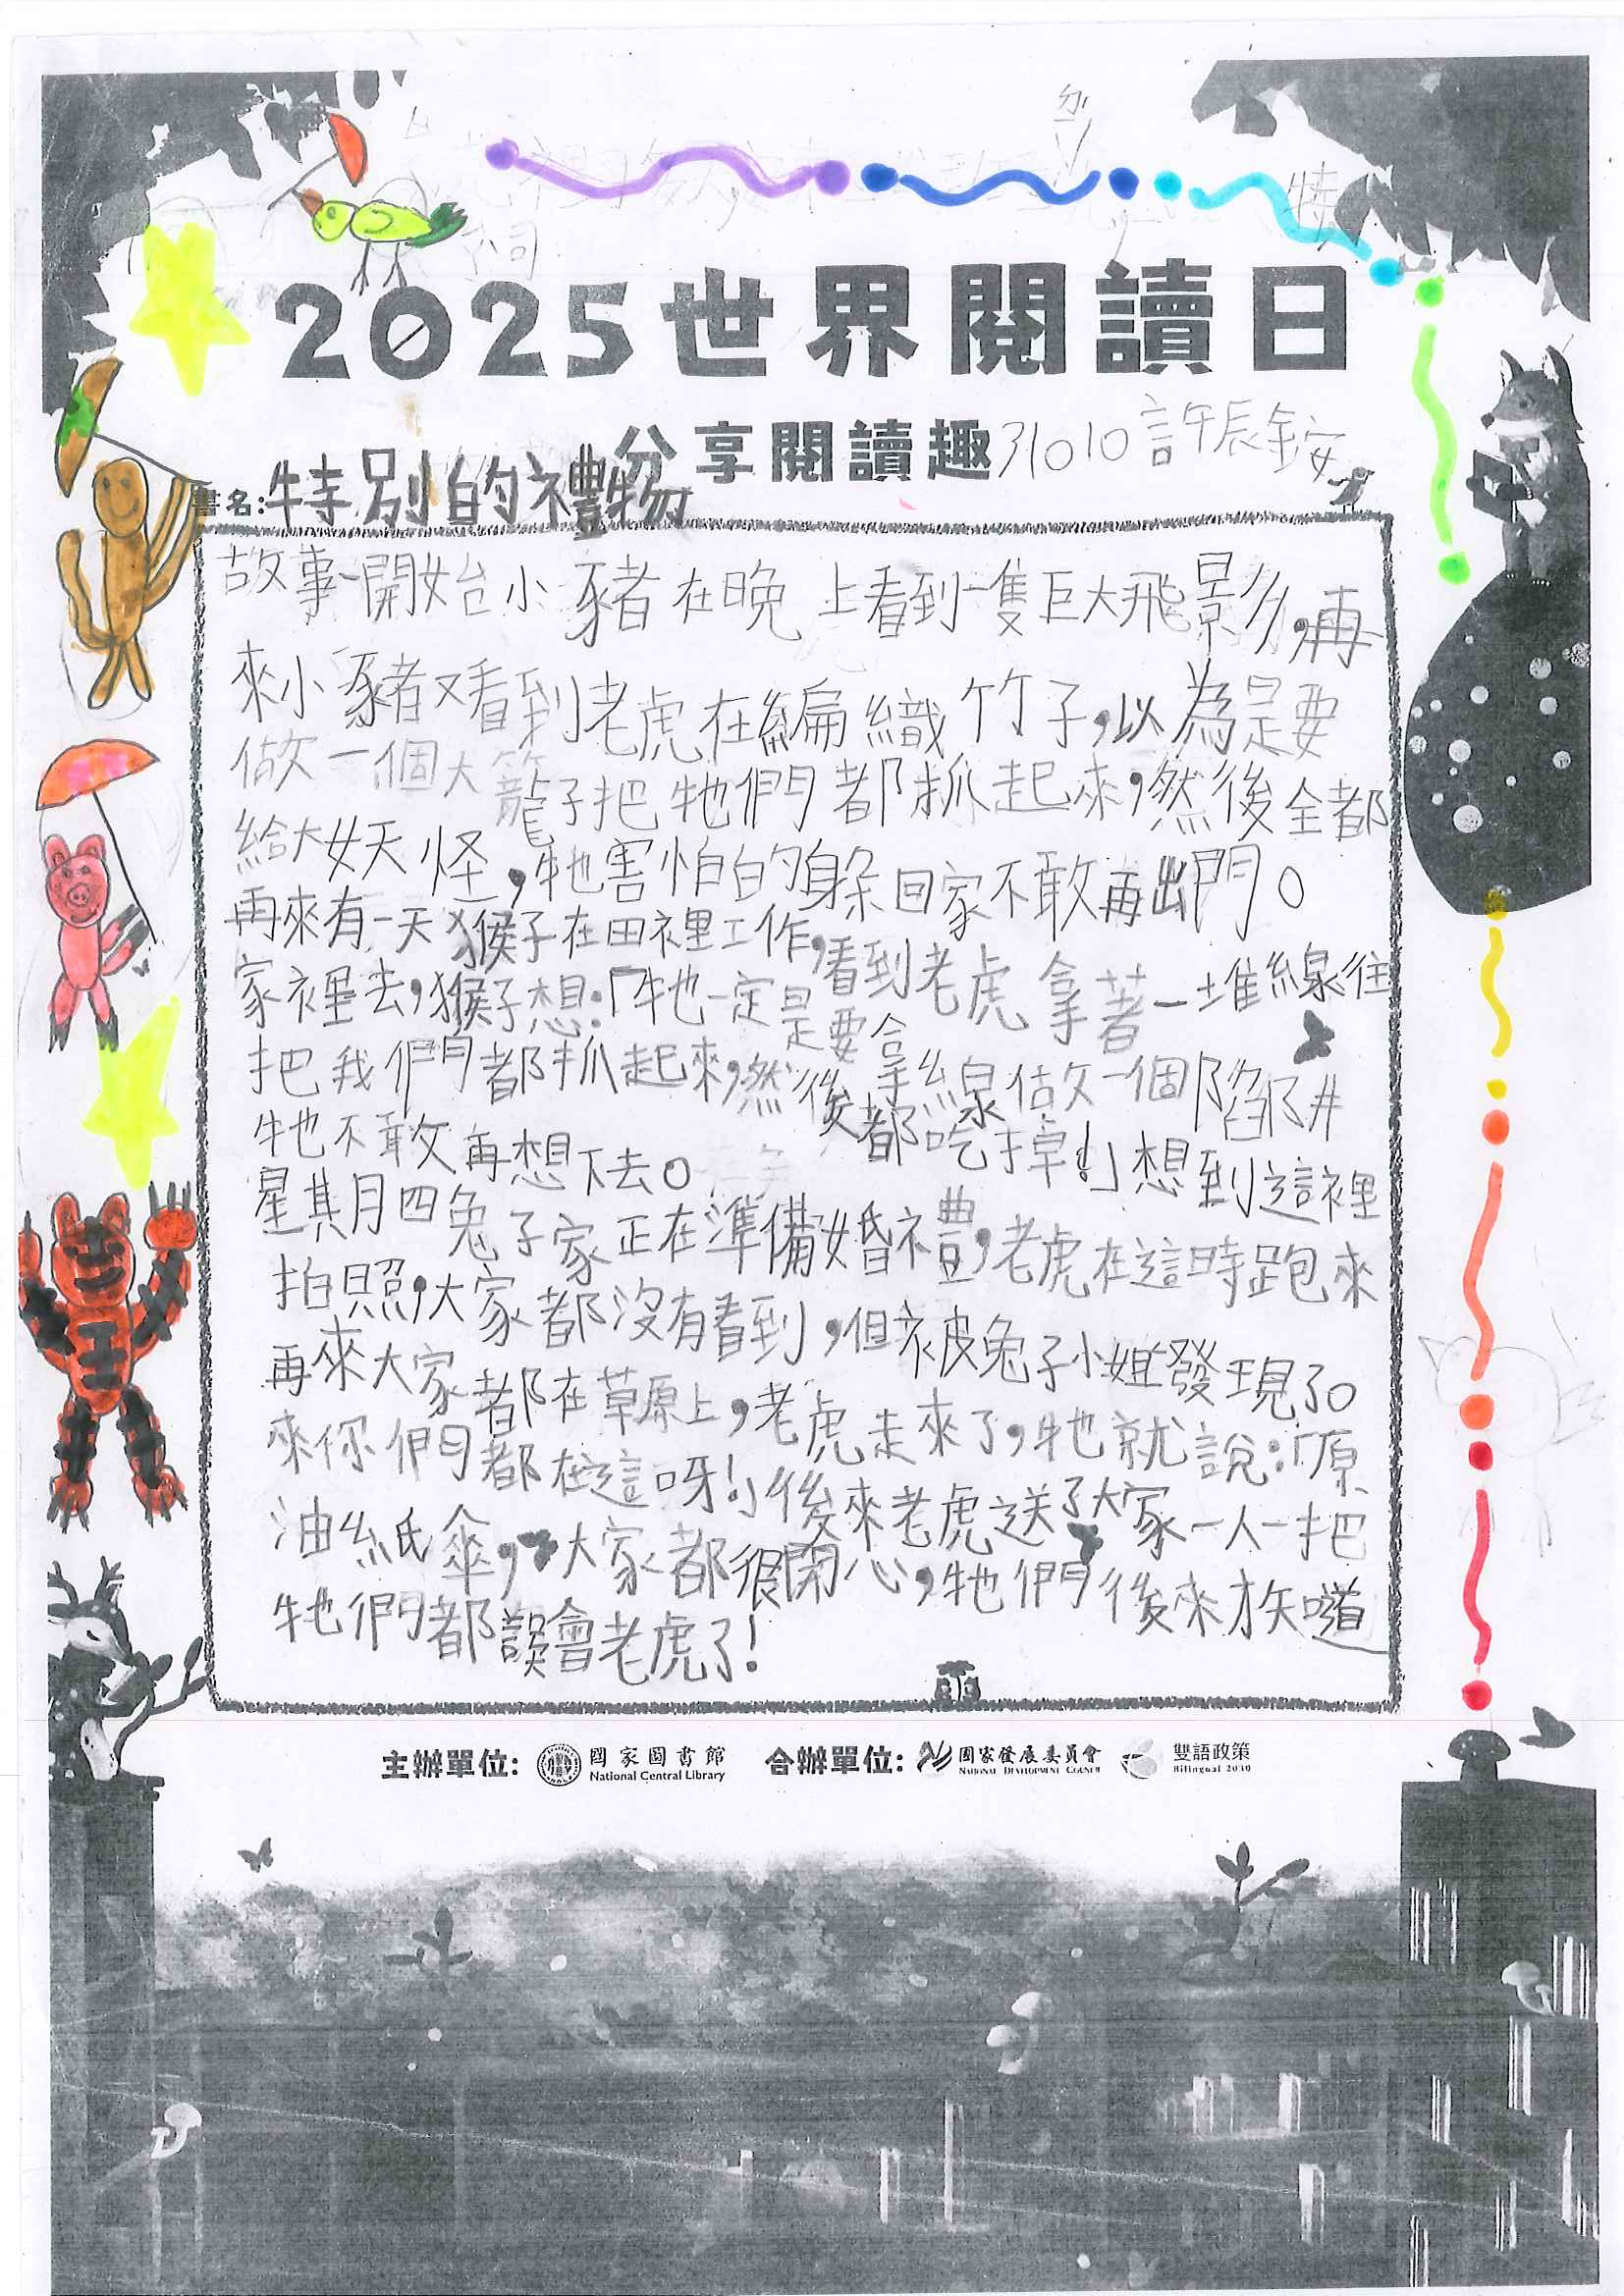 2025世界閱讀日
分享閱讀趣 31010 許辰銨
書名:特別的禮物
故事一開始小豬在晚上看到一隻巨大飛影,再
來小豬又看到老虎在編織竹子,以為是要
做一個大籠子把牠們都抓起來,然後全都
給大妖怪,牠害怕的躲回家不敢再出門。
再來有一天猴子在田裡工作,看到老虎拿著一堆線往
家裡去,猴子想:「牠一定是要拿線做一個陷阱
把我們都抓起來,然後都吃掉!」想到這裡
牠不敢再想下去。
星其月四兔子家正在準備婚禮,老虎在這時跑來
拍照,大家都沒有看到,但被兔子小姐發現了。
再來大家都在草原上,老虎走來了,牠就說:「原
來你們都在這呀!」後來老虎送了大家一人一把
油紙傘,大家都很開心,牠們後來才知道
牠們都誤會老虎了!
主辦單位: 國家圖書館 National Central Library 合辦單位: 國家發展委員會 National Development Council 雙語政策 Bilingual 2030